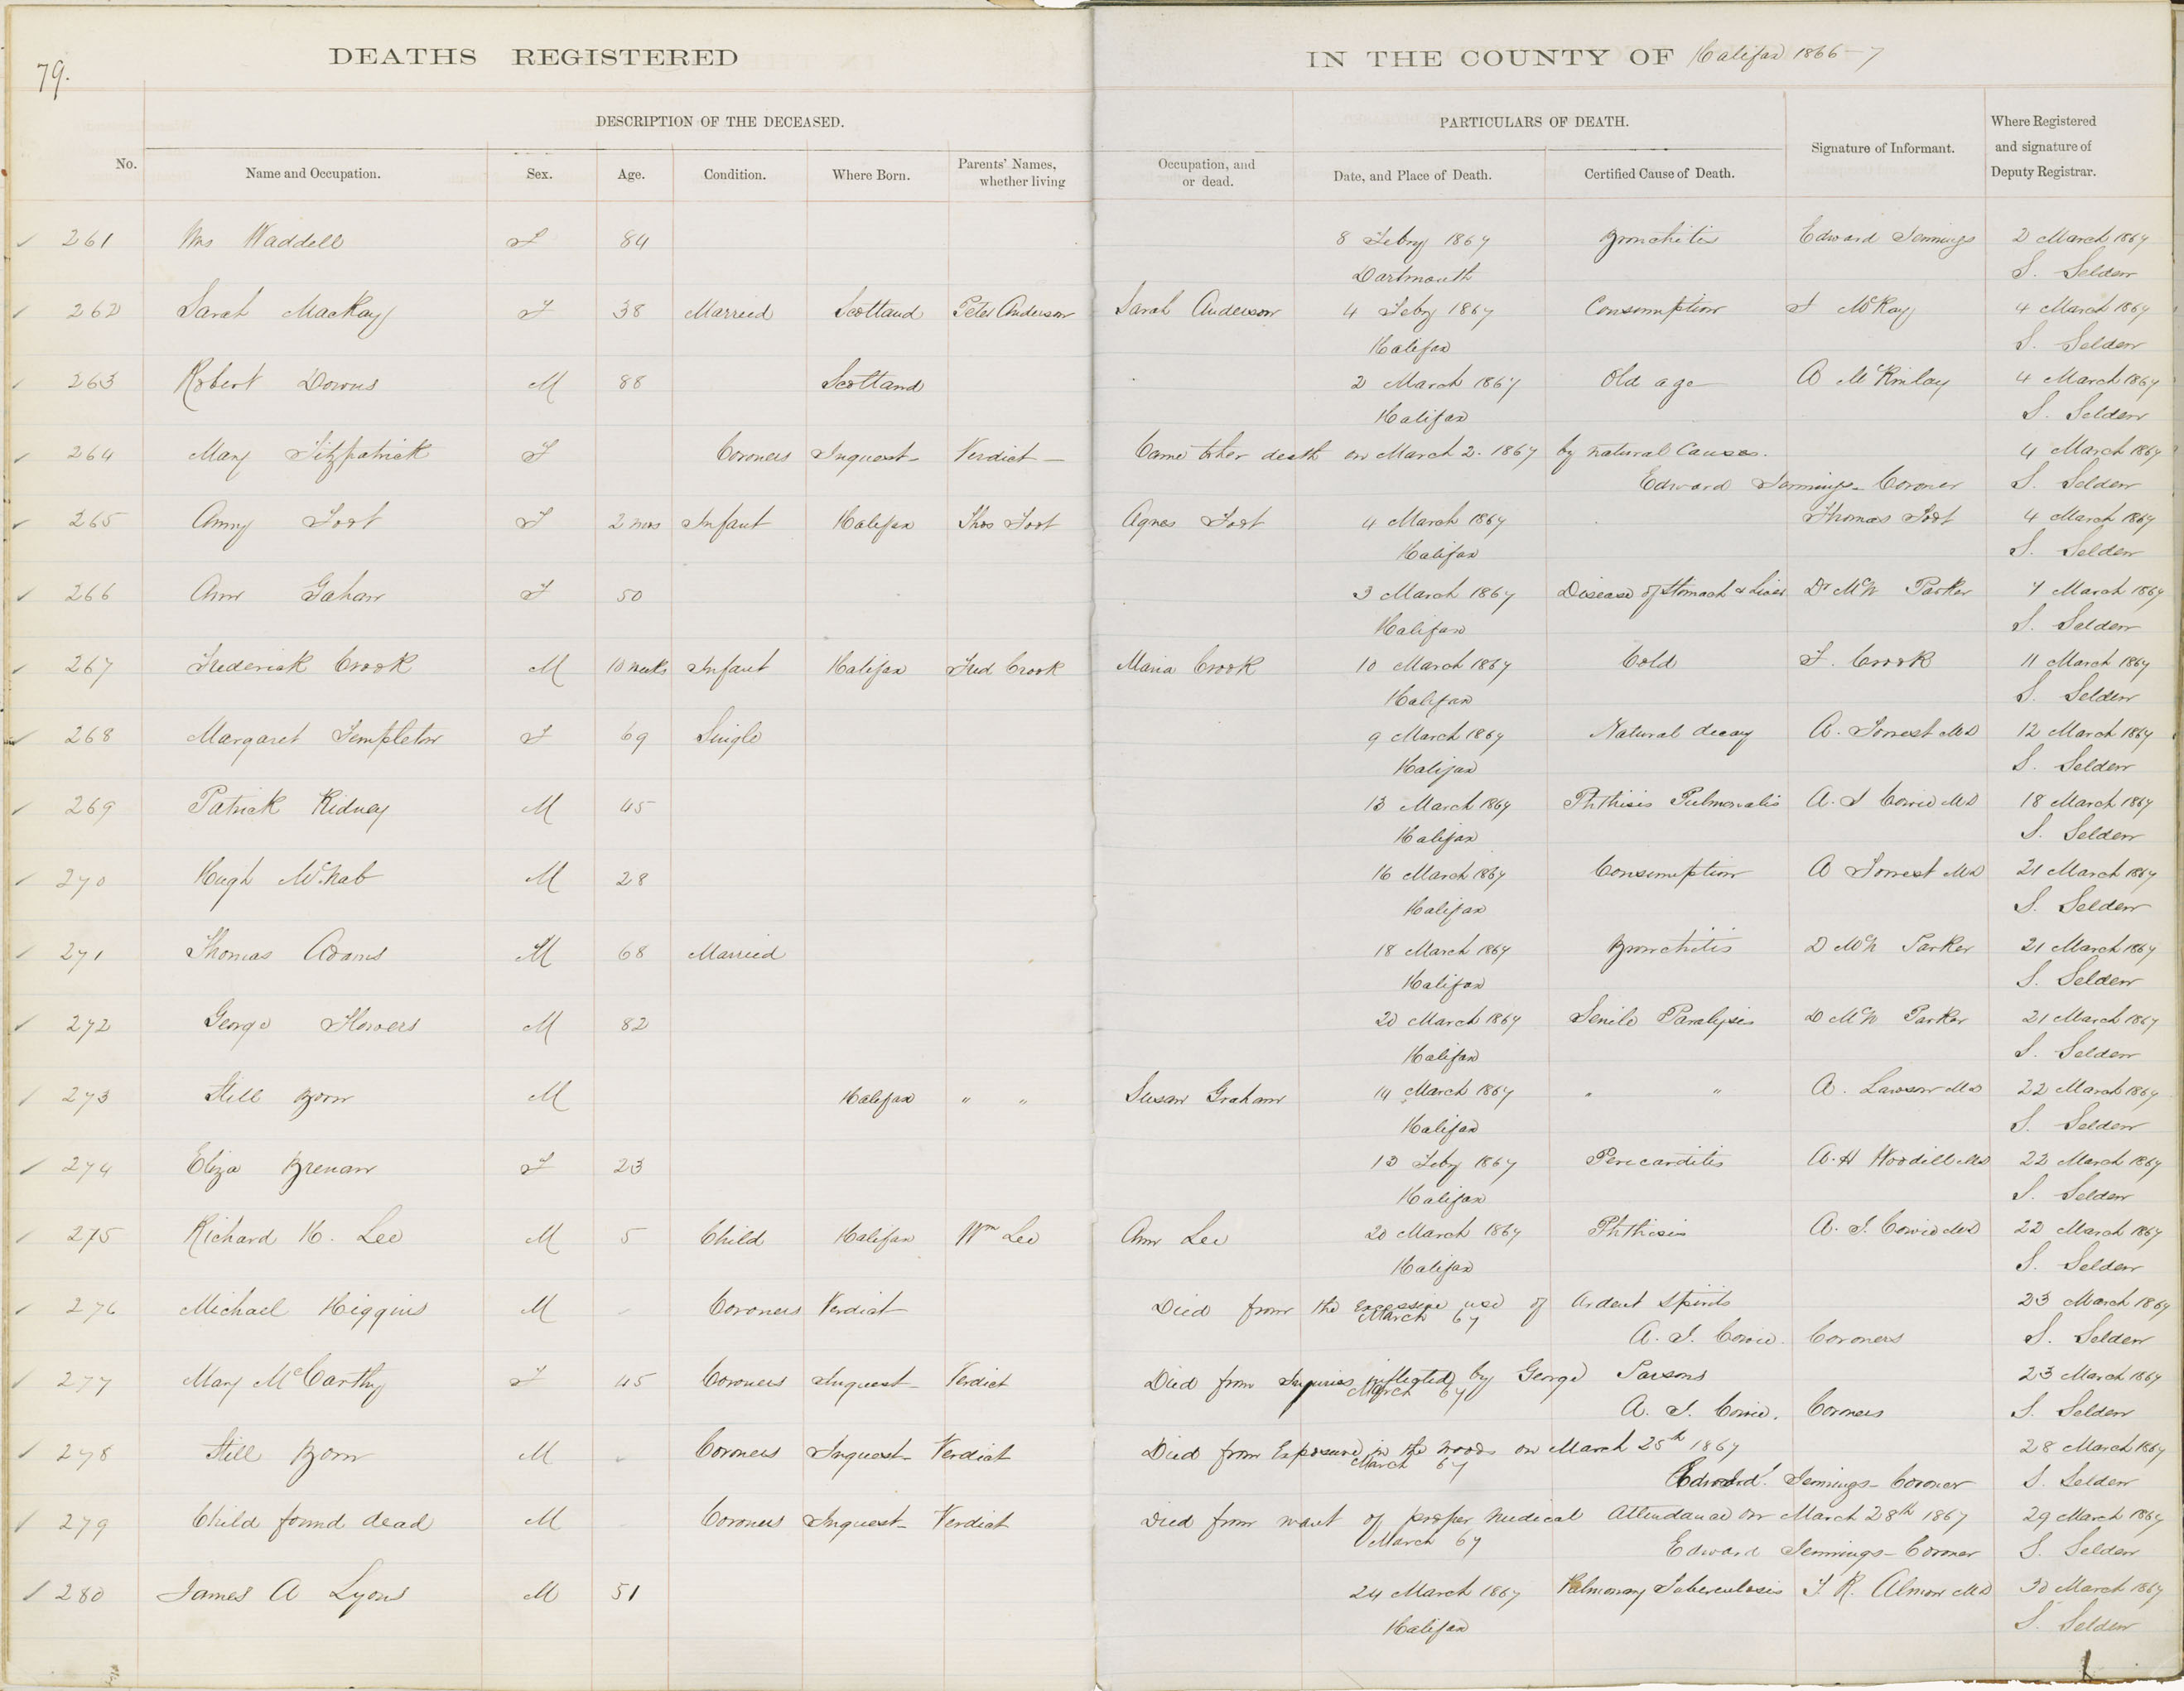 79.
DEATHS REGISTERED IN THE COUNTY OF Halifax 1866-7
DESCRIPTION OF THE DECEASED. PARTICULARS OF DEATH.
No. Name and Occupation. Sex. Age. Condition. Where Born. Parents' Names, whether living Occupation, and or dead. Date, and Place of Death. Certified Cause of Death. Signature of Informant. Where Registered and signature of Deputy Registrar.
261 Mrs Waddell F 84 8 Feby 1867 Bronchitis Edward Jennings 2 March 1867
Dartmouth S. Selden
262 Sarah MacKay F 38 Married Scotland Peter Anderson Sarah Anderson 4 Feby 1867 Consumption McKay 4 March 1867
Halifax S. Selden
263 Robert Downs M 88 Scotland 2 March 1867 Old age A McKinlay 4 March 1867
Halifax S. Selden
264 Mary Fitzpatrick F Coroners Inquest - Verdict - Came to her death on March 2. 1867 by natural Causes. 4 March 1867
Edward Jennings - Coroner S. Selden
265 Amy Foot F 2 mos Infant Halifax Thos Foot Agnes Foot 4 March 1867 Thomas Foot 4 March 1867
Halifax S. Selden
266 Ann Gahan F 50 3 March 1867 Disease of Stomach & Liver Dr McN Parker 7 March 1867
Halifax S. Selden
267 Frederick Crook M 10 weeks Infant Halifax Fred Crook Maria Crook 10 March 1867 Cold F. Crook 11 March 1867
Halifax S. Selden
268 Margaret Templeton F 69 Single 9 March 1867 Natural decay A. Forrest MD 12 March 1867
Halifax S. Selden
269 Patrick Kidney M 45 13 March 1867 Phthisis Pulmonalis A. J Cowie MD 18 March 1867
Halifax S. Selden
270 Hugh McNab M 28 16 March 1867 Consumption A Forrest MD 21 March 1867
Halifax S. Selden
271 Thomas Adams M 68 Married 18 March 1867 Bronchitis D McN Parker 21 March 1867
Halifax S. Selden
272 George Flowers M 82 20 March 1867 Senile Paralysis D McN Parker 21 March 1867
Halifax S. Selden
273 Still Born M Halifax " " Susan Graham 14 March 1867 " " A. Lawson MD 22 March 1867
Halifax S. Selden
274 Eliza Brenan F 23 Feby 1867 Pericarditis A. H Woodill MD 22 March 1867
Halifax S. Selden
275 Richard H. Lee M 5 Child Halifax Wm Lee Ann Lee 20 March 1867 Phthisis A. J. Cowie MD 22 March 1867
Halifax S. Selden
276 Michael Higgins M - Coroners Verdict Died from the excessive use of Ardent Spirits 23 March 1867
March 67 A. J. Cowie. Coroners S. Selden
277 Mary McCarthy F 45 Coroners Inquest - Verdict Died from Injuries inflicted by George Parsons 23 March 1867
March 67 A. J. Cowie. Coroners S. Selden
278 Still Born M - Coroners Inquest - Verdict Died from Exposure in the woods on March 25th 1867 28 March 1867
March 67 Edward Jennings - Coroner S. Selden
279 Child found dead M Coroners Inquest - Verdict Died from want of proper Medical Attendance on March 28th 1867 29 March 1867
March 67 Edward Jennings - Coroner S. Selden
280 James A Lyons M 51 24 March 1867 Pulmonary Tuberculosis R. Almon MD 30 March 1867
Halifax S. Selden